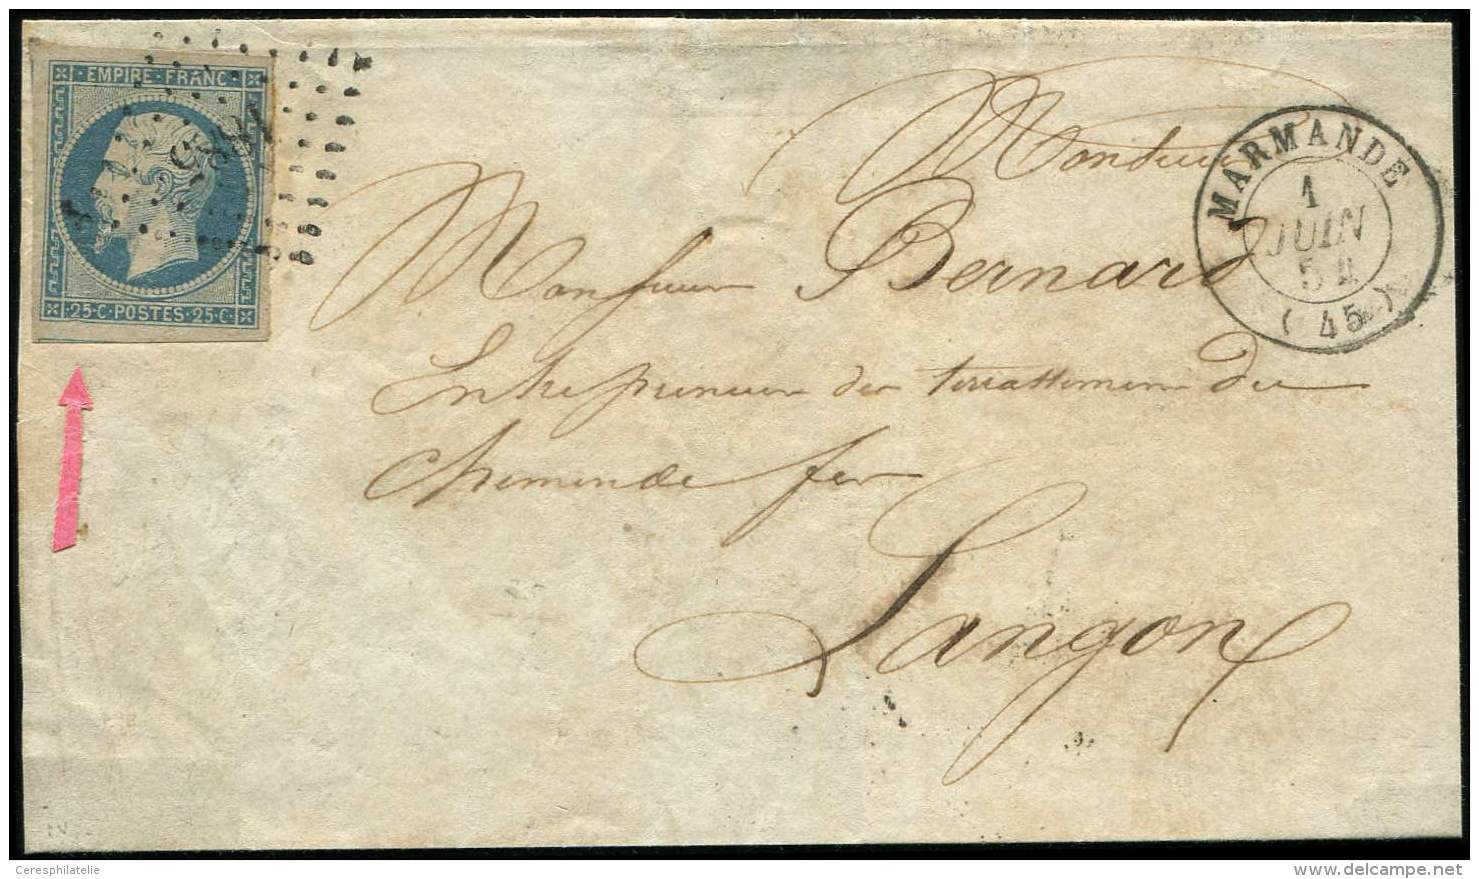 EMPIRE · FRANC ·
25 · C · POSTES · 25 · C ·
1885
MARMANDE
1
JUIN
54
(45)
Monsieur
Monsieur Bernard
Entrepreneur des terrassements du
Chemin de fer
Langon
Ceresphilatelie
www.delcampe.net